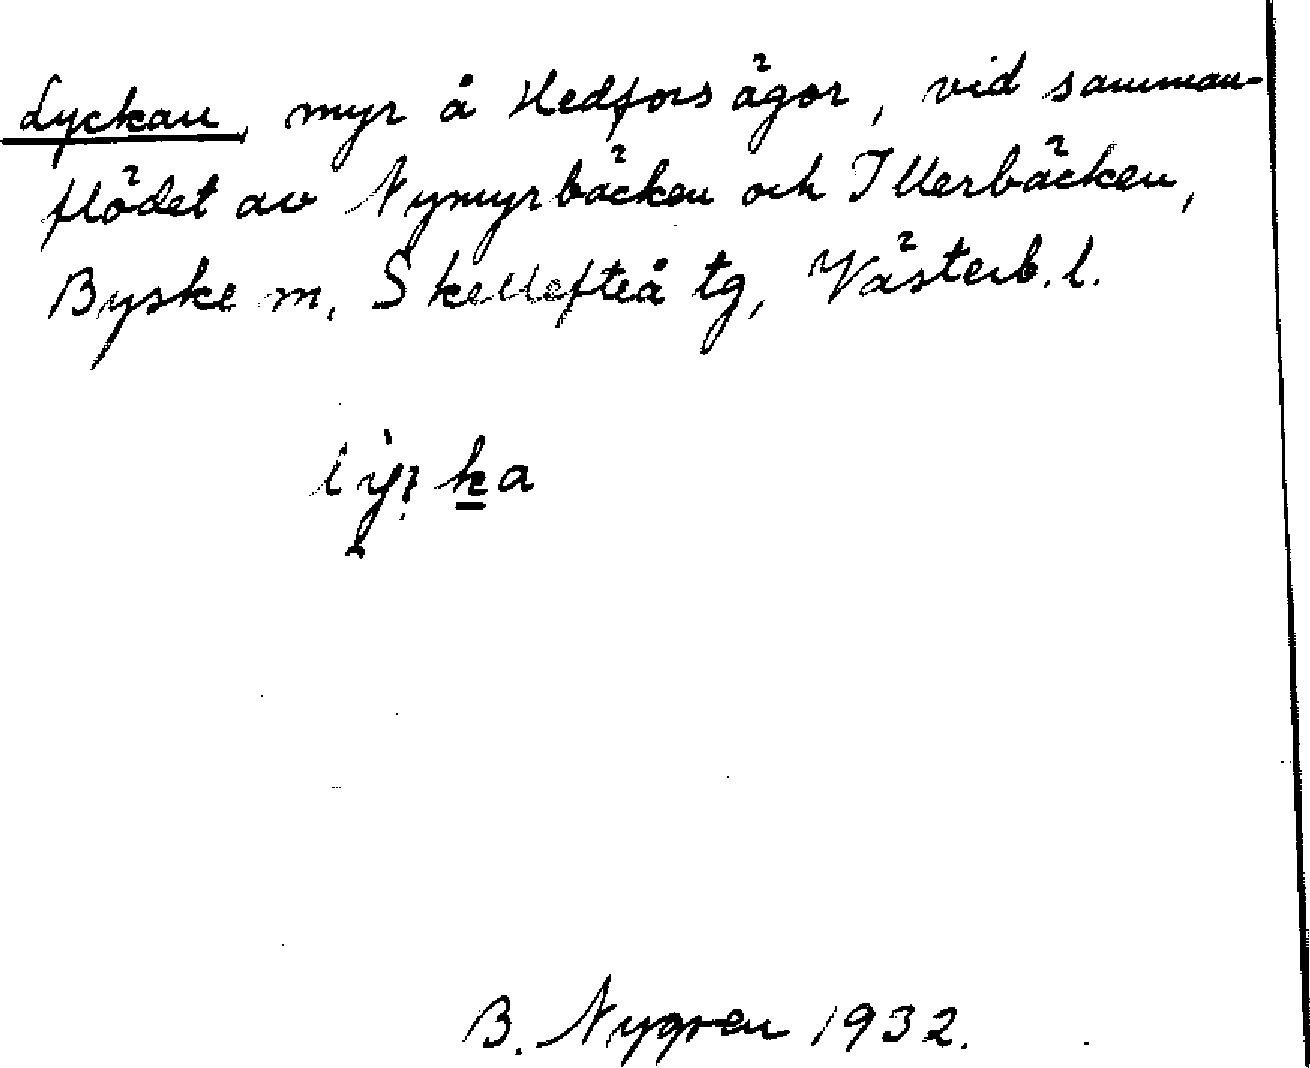 Lyckan, myr å Hedfors ägor, vid samman-
flödet av Nymyrbäcken och Illerbäcken,
Byske sn, Skellefteå tg, Västerb. l.
B. Nygren 1932.